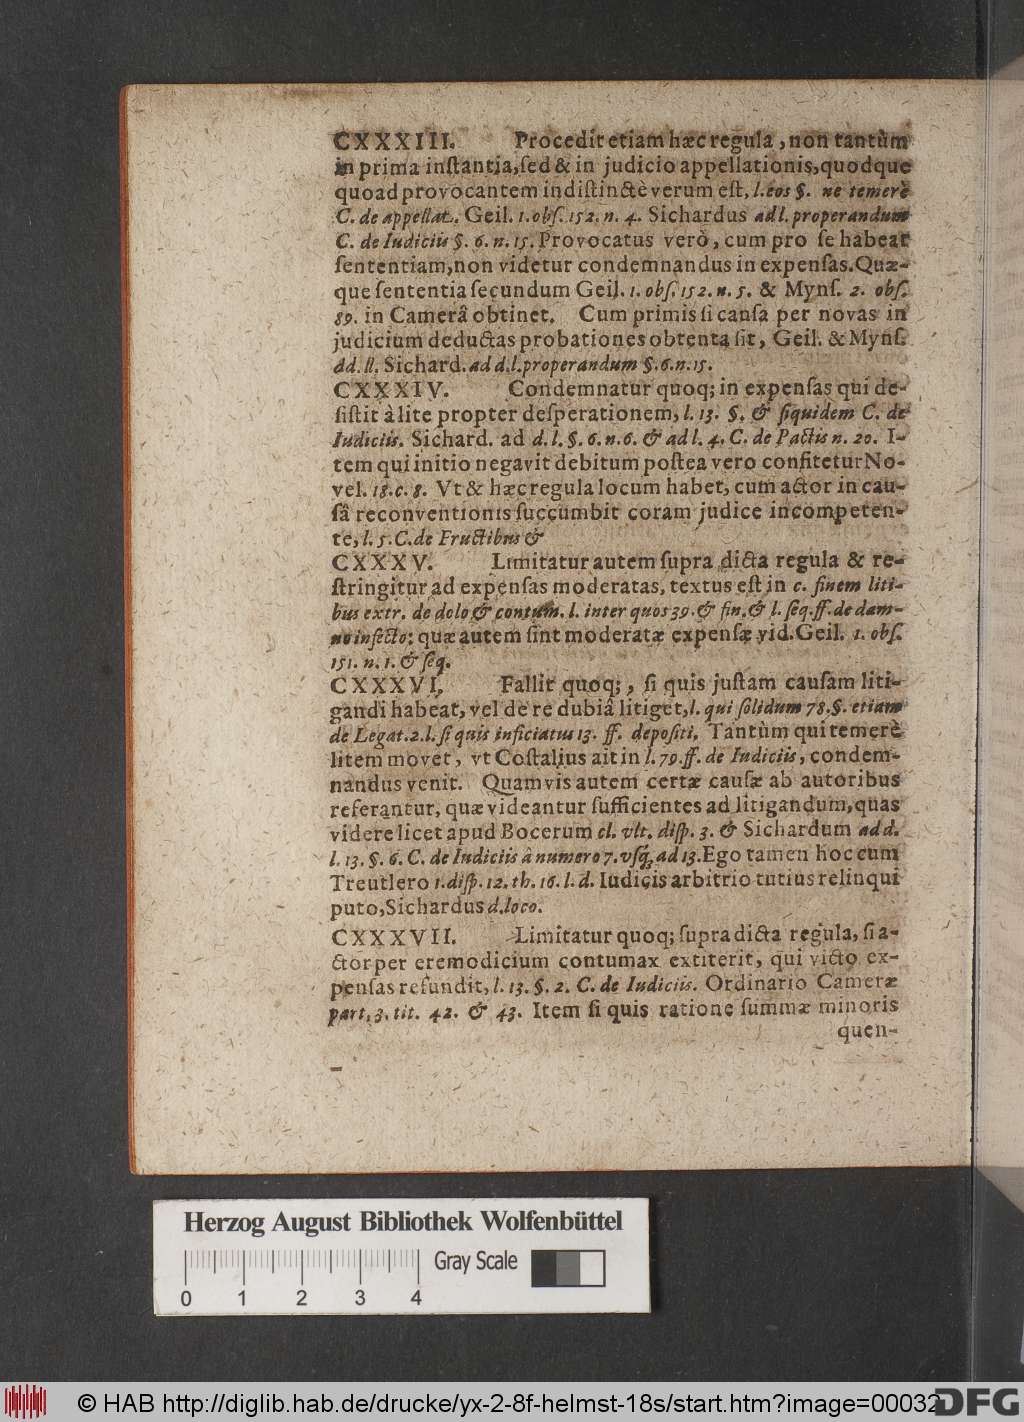 CXXXIII. Procedit etiam hæc regula, non tantùm
in prima instantia, sed & in judicio appellationis, quodque
quoad provocantem indistinctè verum est, l. eos §. ne temerè
C. de appellat. Geil. 1. obs. 152. n. 4. Sichardus ad l. properandum
C. de Iudiciis §. 6. n. 15. Provocatus verò, cum pro se habeat
sententiam, non videtur condemnandus in expensas. Quæ-
que sententia secundum Geil. 1. obs. 152. n. 5. & Myns. 2. obs.
89. in Camerâ obtinet. Cum primis si causa per novas in
judicium deductas probationes obtenta sit, Geil. & Myns.
dd. ll. Sichard. ad d. l. properandum §. 6. n. 15.
CXXXIV. Condemnatur quoq; in expensas qui de-
sistit à lite propter desperationem, l. 13. §. & siquidem C. de
Iudiciis. Sichard. ad d. l. §. 6. n. 6. & ad l. 4. C. de Pactis n. 20. I-
tem qui initio negavit debitum postea vero confitetur No-
vel. 18. c. 8. Vt & hæc regula locum habet, cum actor in cau-
sâ reconventionis succumbit coram judice incompeten-
te, l. 5. C. de Fructibus &
CXXXV. Limitatur autem supra dicta regula & re-
stringitur ad expensas moderatas, textus est in c. finem liti-
bus extr. de dolo & contum. l. inter quos 39. & fin. & l. seq. ff. de dam-
no infecto: quæ autem sint moderatæ expensæ vid. Geil. 1. obs.
151. n. 1. & seq.
CXXXVI. Fallit quoq;, si quis justam causam liti-
gandi habeat, vel de re dubiâ litiget, l. qui solidum 78. §. etiam
de Legat. 2. l. si quis inficiatus 13. ff. depositi, Tantùm qui temerè
litem movet, vt Costalius ait in l. 79. ff. de Iudiciis, condem-
nandus venit. Quamvis autem certæ causæ ab autoribus
referantur, quæ videantur sufficientes ad litigandum, quas
videre licet apud Bocerum cl. vlt. disp. 3. & Sichardum ad d.
l. 13. §. 6. C. de Iudiciis â numero 7. vsq; ad 13. Ego tamen hoc cum
Treutlero 1. disp. 12. th. 16. l. d. Iudicis arbitrio tutius relinqui
puto, Sichardus d. loco.
CXXXVII. Limitatur quoq; supra dicta regula, si a-
ctor per eremodicium contumax extiterit, qui victo ex-
pensas refundit, l. 13. §. 2. C. de Iudiciis. Ordinario Cameræ
part. 3. tit. 42. & 43. Item si quis ratione summæ minoris
quen-
Herzog August Bibliothek Wolfenbüttel
Gray Scale
0 1 2 3 4
© HAB http://diglib.hab.de/drucke/yx-2-8f-helmst-18s/start.htm?image=00032
DFG